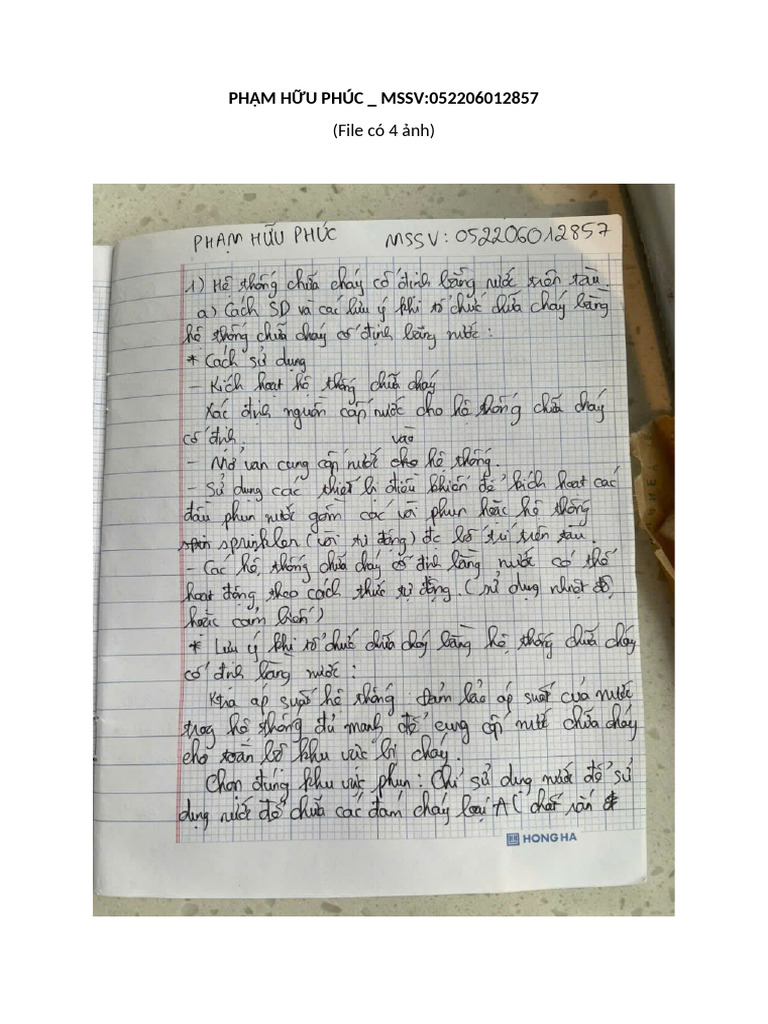 PHẠM HỮU PHÚC _ MSSV:052206012857
(File có 4 ảnh)
PHẠM HỮU PHÚC MSSV: 052206012857
1) Hệ thống chữa cháy cố định bằng nước trên tàu.
a) Cách SD và các lưu ý khi tổ chức chữa cháy bằng
hệ thống chữa cháy cố định bằng nước:
* Cách sử dụng
- Kích hoạt hệ thống chữa cháy
Xác định nguồn cấp nước cho hệ thống chữa cháy
cố định.
vào
- Mở van cung cấp nước cho hệ thống.
- Sử dụng các thiết bị điều khiển để kích hoạt các
đầu phun nước gồm các vòi phun hoặc hệ thống
sprinkler (vòi tự động) đc bố trí trên tàu.
- Các hệ thống chữa cháy cố định bằng nước có thể
hoạt động theo cách thức tự động. (sử dụng nhiệt độ,
hoặc cảm biến)
* Lưu ý khi tổ chức chữa cháy bằng hệ thống chữa cháy
cố định bằng nước:
Ktra áp suất hệ thống: Đảm bảo áp suất của nước
trog hệ thống đủ mạnh để cung cấp nước chữa cháy
cho toàn bộ khu vực bị cháy.
Chọn đúng khu vực phun: Chỉ sử dụng nước để sử
dụng nước để chữa các đám cháy loại A (chất rắn
HONG HA